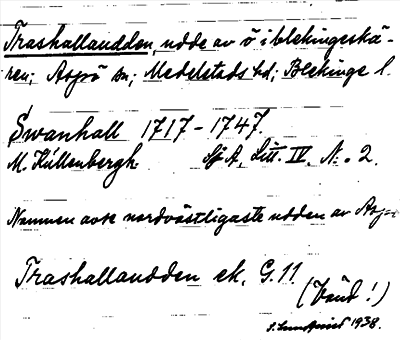 Trashallaudden, udde av ö i blekingeskä-
ren; Aspö sn; Medelstads hd; Blekinge l.
Swanhall 1717-1747.
M. Küllenbergh. Sj A, Litt. IV. N. 2.
Namnen avse nordvästligaste udden av Asp
Trashallaudden ek. G. 11.
(Vänd!)
1938.